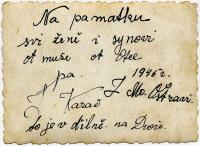 Na památku
svi ženě i synovi
ot muže ot Otce
pa. 1946 r.
Karač z Mo. Ostravi.
to je v dilně na Dvoře.